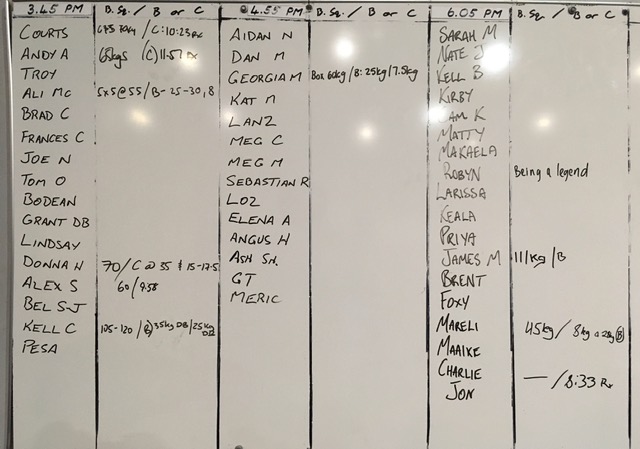 3.45 PM B.Sq. / B or C 4.55 PM B.Sq. / B or C 6.05 PM B.Sq. / B or C
COURTS C:10:23 Rx
ANDY A 65kgs (C) 11:57 Rx
TROY
ALI MC 5x5@55/B-25-30, 8
BRAD C
FRANCES C
JOE N
TOM O
BODEAN
GRANT DB
LINDSAY
DONNA H 70/C@35 & 15-17.5
ALEX S 60/9.58
BEL S-J
KELL C 105-120/(B) 35kg DB/25kg DB
PESA
AIDAN N
DAN M
GEORGIA M Box 60kg/B:25kg/7.5kg
KAT M
LANZ
MEG C
MEG M
SEBASTIAN R
LOZ
ELENA A
ANGUS H
ASH SH.
GT
MERIC
SARAH M
NATE J
KELL B
KIRBY
SAM K
MATTY
MAKAELA
ROBYN Being a legend
LARISSA
KEALA
PRIYA
JAMES M 111kg/B
BRENT
FOXY
MARELI 45kg/8kg
MAAIKE
CHARLIE — /8:33 Rx
JON